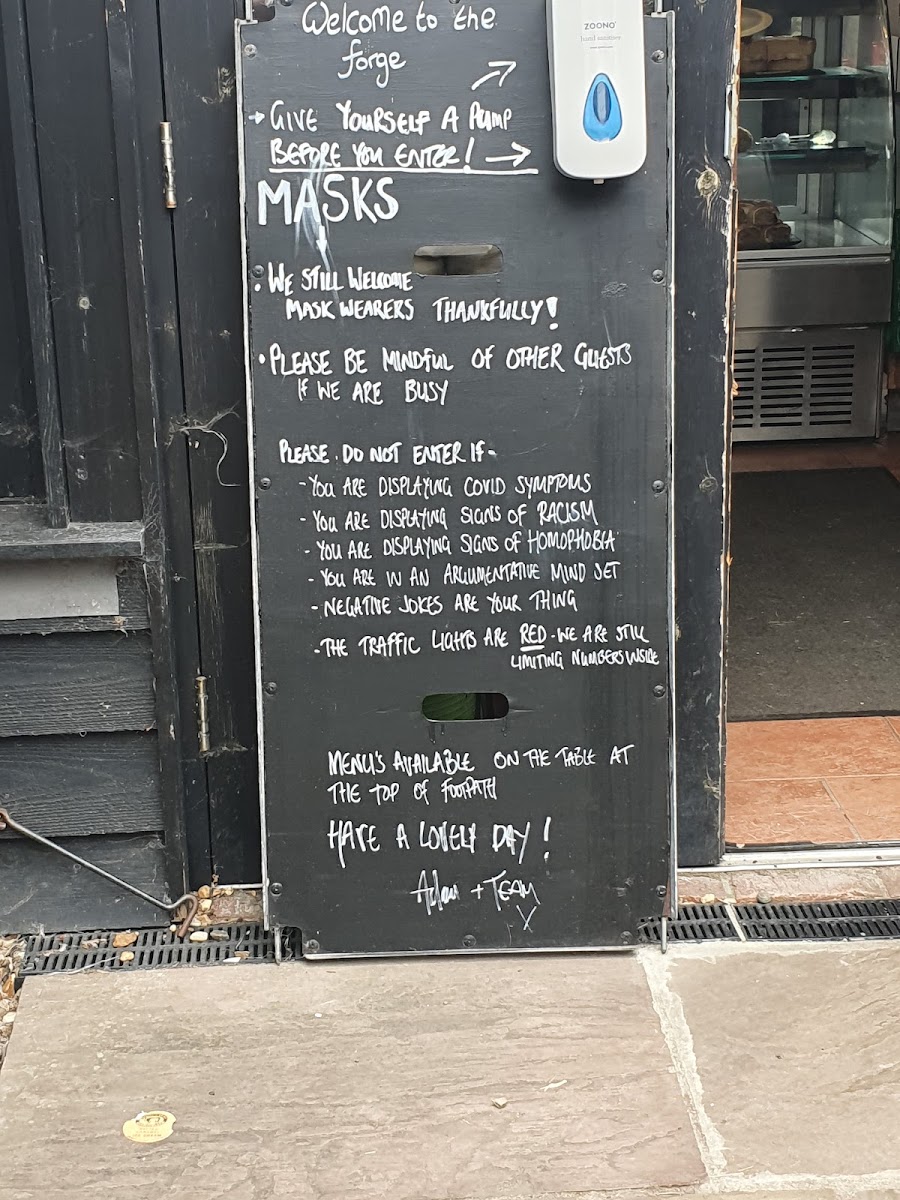 Welcome to the
forge
ZOONO
hand sanitiser
→ GIVE YOURSELF A PUMP
BEFORE YOU ENTER! →
MASKS
• WE STILL WELCOME
MASK WEARERS THANKFULLY!
• PLEASE BE MINDFUL OF OTHER GUESTS
IF WE ARE BUSY
PLEASE DO NOT ENTER IF -
- YOU ARE DISPLAYING COVID SYMPTOMS
- YOU ARE DISPLAYING SIGNS OF RACISM
- YOU ARE DISPLAYING SIGNS OF HOMOPHOBIA
- YOU ARE IN AN ARGUMENTATIVE MIND SET
- NEGATIVE JOKES ARE YOUR THING
- THE TRAFFIC LIGHTS ARE RED - WE ARE STILL
LIMITING NUMBERS INSIDE
MENU'S AVAILABLE ON THE TABLE AT
THE TOP OF FOOTPATH
HAVE A LOVELY DAY!
Adam + TEAM
X